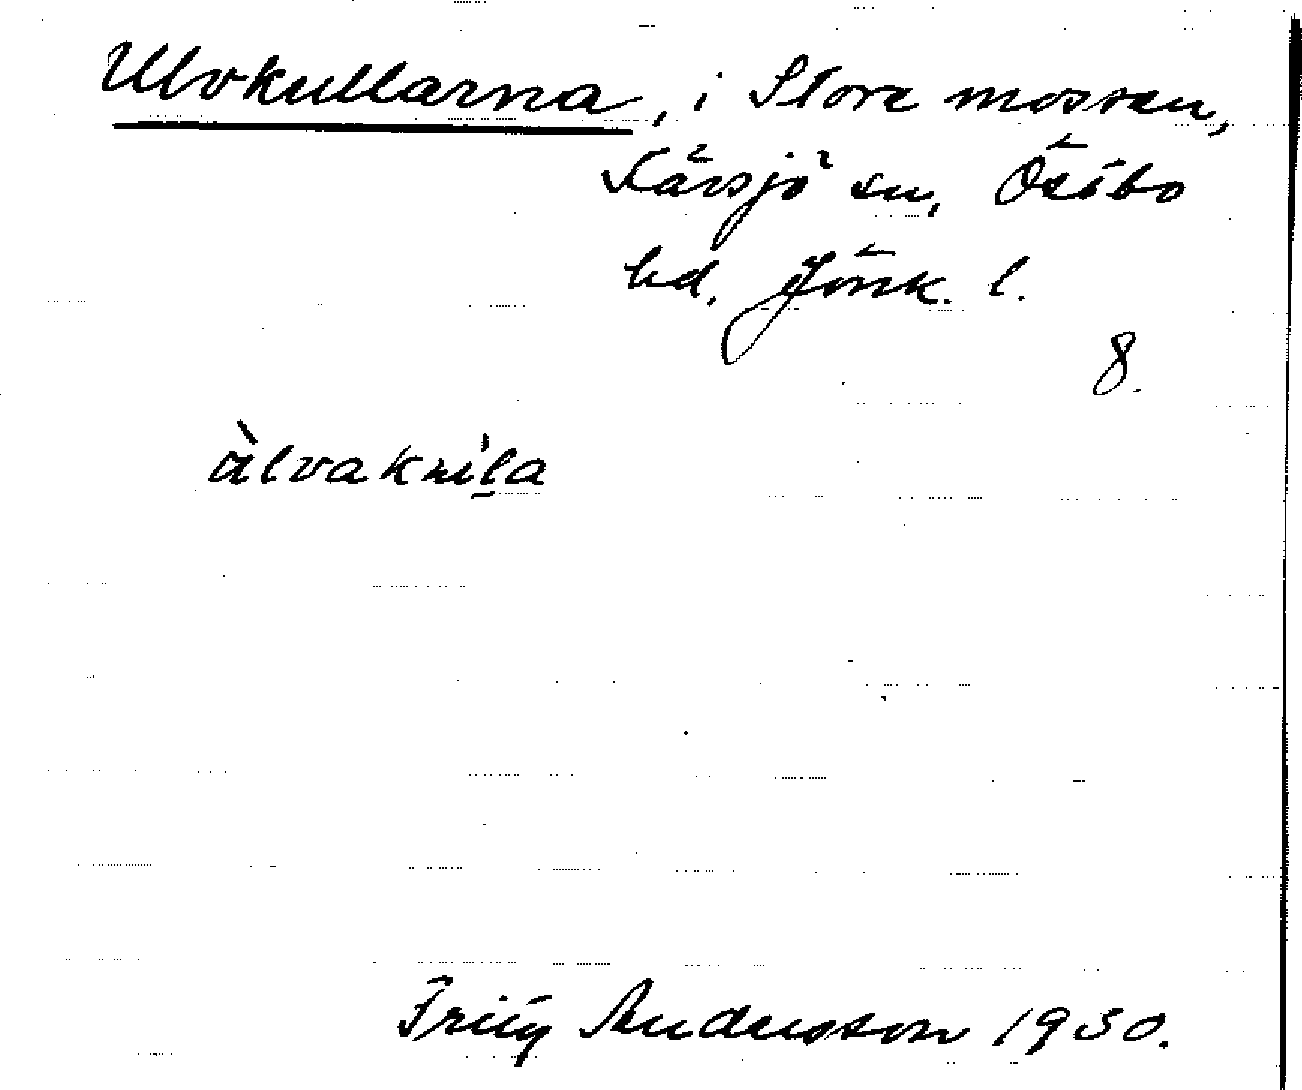 Ulvkullarna, i Stora mossen,
Kärsjö sn, Östbo
hd. Jönk. l.
8.
àlvakníḷa
Fritz Andersson 1930.